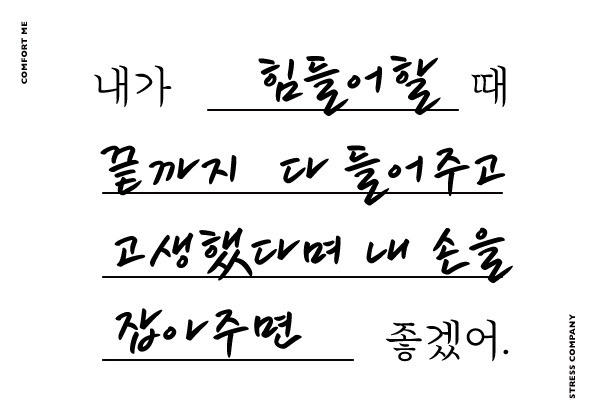 COMFORT ME
내가 힘들어할 때
끝까지 다 들어주고
고생했다며 내 손을
잡아주면 좋겠어.
STRESS COMPANY